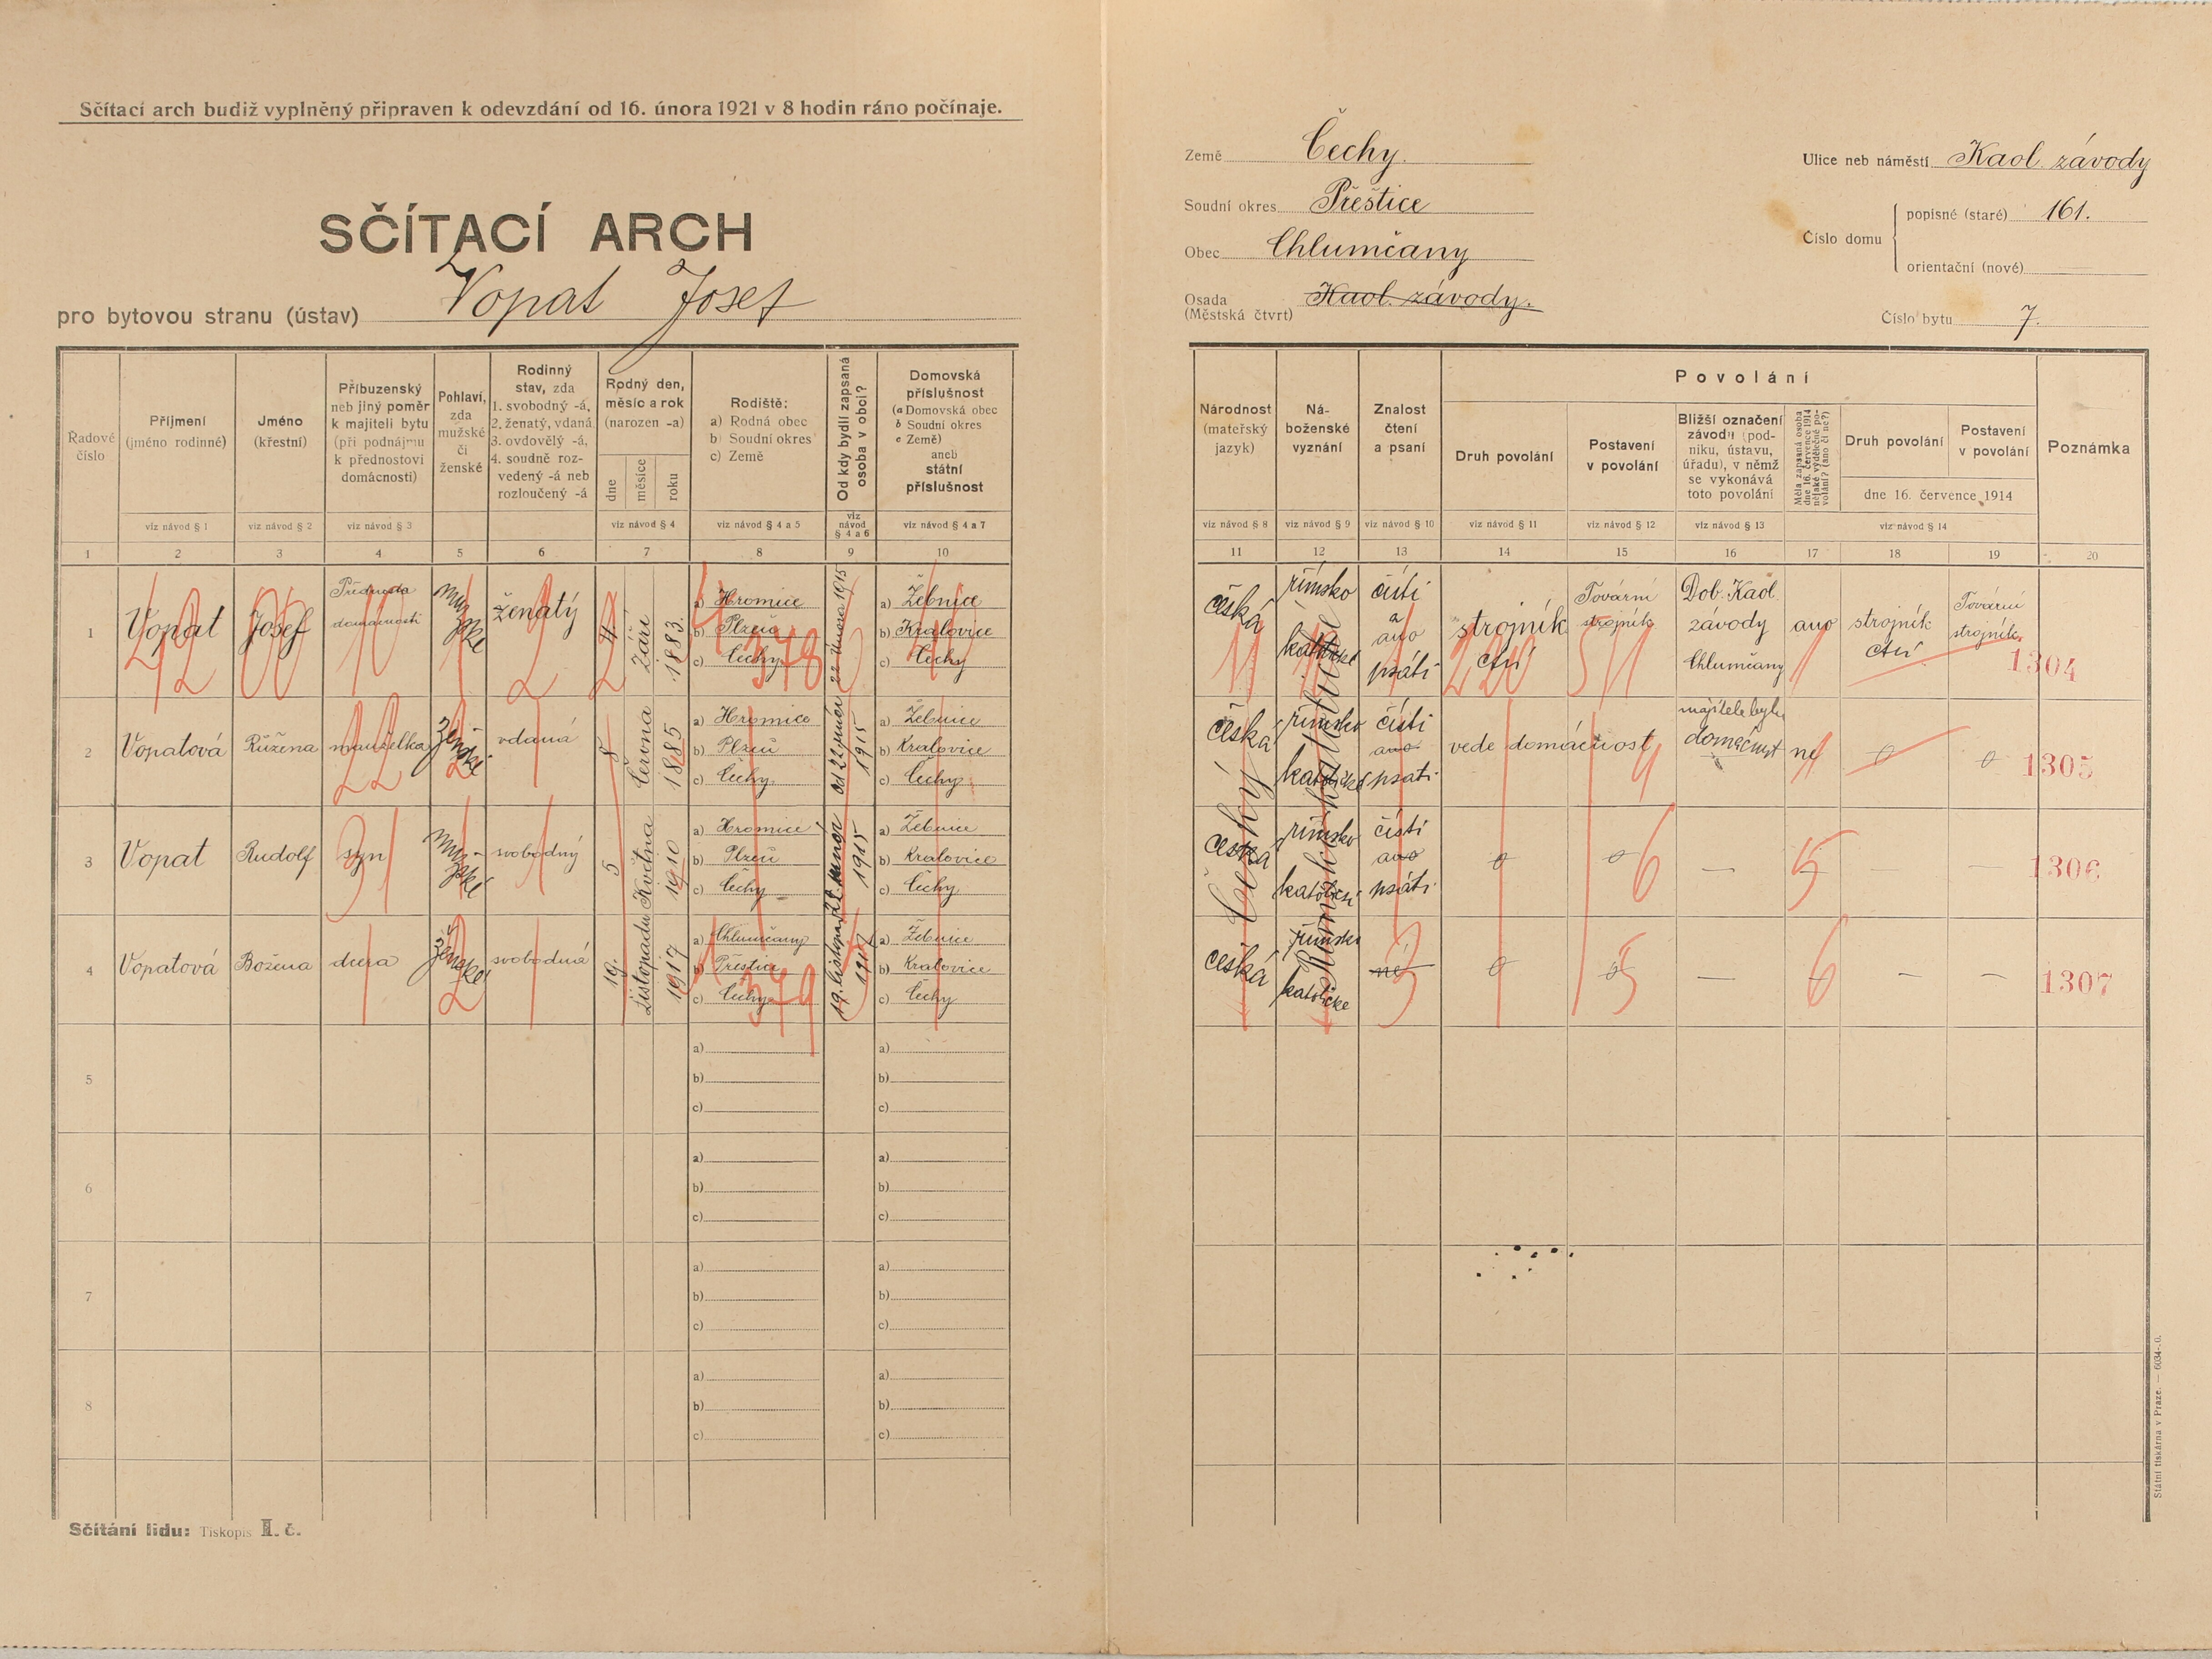 Sčítací arch budiž vyplněný připraven k odevzdání od 16. února 1921 v 8 hodin ráno počínaje.
SČÍTACÍ ARCH
pro bytovou stranu (ústav) Vopat Josef
Země Čechy.
Soudní okres Přeštice
Obec Chlumčany
Osada (Městská čtvrt) Kaol. závody.
Ulice neb náměstí Kaol. závody
Číslo domu
popisné (staré) 161.
orientační (nové)
Číslo bytu 7.
Řadové číslo
Příjmení (jméno rodinné)
Jméno (křestní)
Příbuzenský neb jiný poměr k majiteli bytu (při podnájmu k přednostovi domácnosti)
Pohlaví, zda mužské či ženské
Rodinný stav, zda 1. svobodný -á, 2. ženatý, vdaná 3. ovdovělý -á, 4. soudně rozvedený -á neb rozloučený -á
Rodný den, měsíc a rok (narozen -a)
dne měsíce roku
Rodiště:
a) Rodná obec
b) Soudní okres
c) Země
Od kdy bydlí zapsaná osoba v obci?
Domovská příslušnost
(a Domovská obec
b Soudní okres
c Země)
aneb
státní příslušnost
viz návod § 1 viz návod § 2 viz návod § 3 viz návod § 4 viz návod § 4 a 5 viz návod § 4 a 6 viz návod § 4 a 7
1 2 3 4 5 6 7 8 9 10
Národnost (mateřský jazyk)
Náboženské vyznání
Znalost čtení a psaní
Povolání
Druh povolání
Postavení v povolání
Bližší označení závodu (podniku, ústavu, úřadu), v němž se vykonává toto povolání
Měla zapsaná osoba dne 16. července 1914 nějaké výdělečné povolání? (ano či ne?)
Druh povolání
Postavení v povolání
dne 16. července 1914
Poznámka
viz návod § 8 viz návod § 9 viz návod § 10 viz návod § 11 viz návod § 12 viz návod § 13 viz návod § 14
11 12 13 14 15 16 17 18 19 20
1 Vopat Josef Přednosta domácnosti mužské ženatý 4 Září 1883.
a) Hromice
b) Plzeň
c) Čechy
22 února 1915
a) Žebnice
b) Kralovice
c) Čechy
378
česká římsko katolické čísti a psáti ano strojník ctví Tovární strojník Dob. Kaol. závody Chlumčany ano strojník ctví Tovární strojník 1304
11 1 220 511 1
2 Vopatová Růžena manželka ženské vdaná 8 Června 1885
a) Hromice
b) Plzeň
c) Čechy
od 22 únor 1915
a) Žebnice
b) Kralovice
c) Čechy
česká římsko katolické čísti ano psati vede domácnost majitele bytu domácnost ne 0 0 1305
3 Vopat Rudolf syn mužské svobodný 5 Května 1910
a) Hromice
b) Plzeň
c) Čechy
22. únor 1915
a) Žebnice
b) Kralovice
c) Čechy
česká římsko katolické čísti ano psáti 0 0 6 — 5 — — 1306
4 Vopatová Božena dcera ženské svobodná 19. Listopadu 1917
a) Chlumčany
b) Přeštice
c) Čechy
379
19. listopad 1917
a) Žebnice
b) Kralovice
c) Čechy
česká římsko katolické ne 3 0 0 5 — 6 — — 1307
Český
Římsko katolické
5
a)
b)
c)
a)
b)
c)
6
a)
b)
c)
a)
b)
c)
7
a)
b)
c)
a)
b)
c)
8
a)
b)
c)
a)
b)
c)
Sčítání lidu: Tiskopis II. č.
Státní tiskárna v Praze. — 6034-.0.